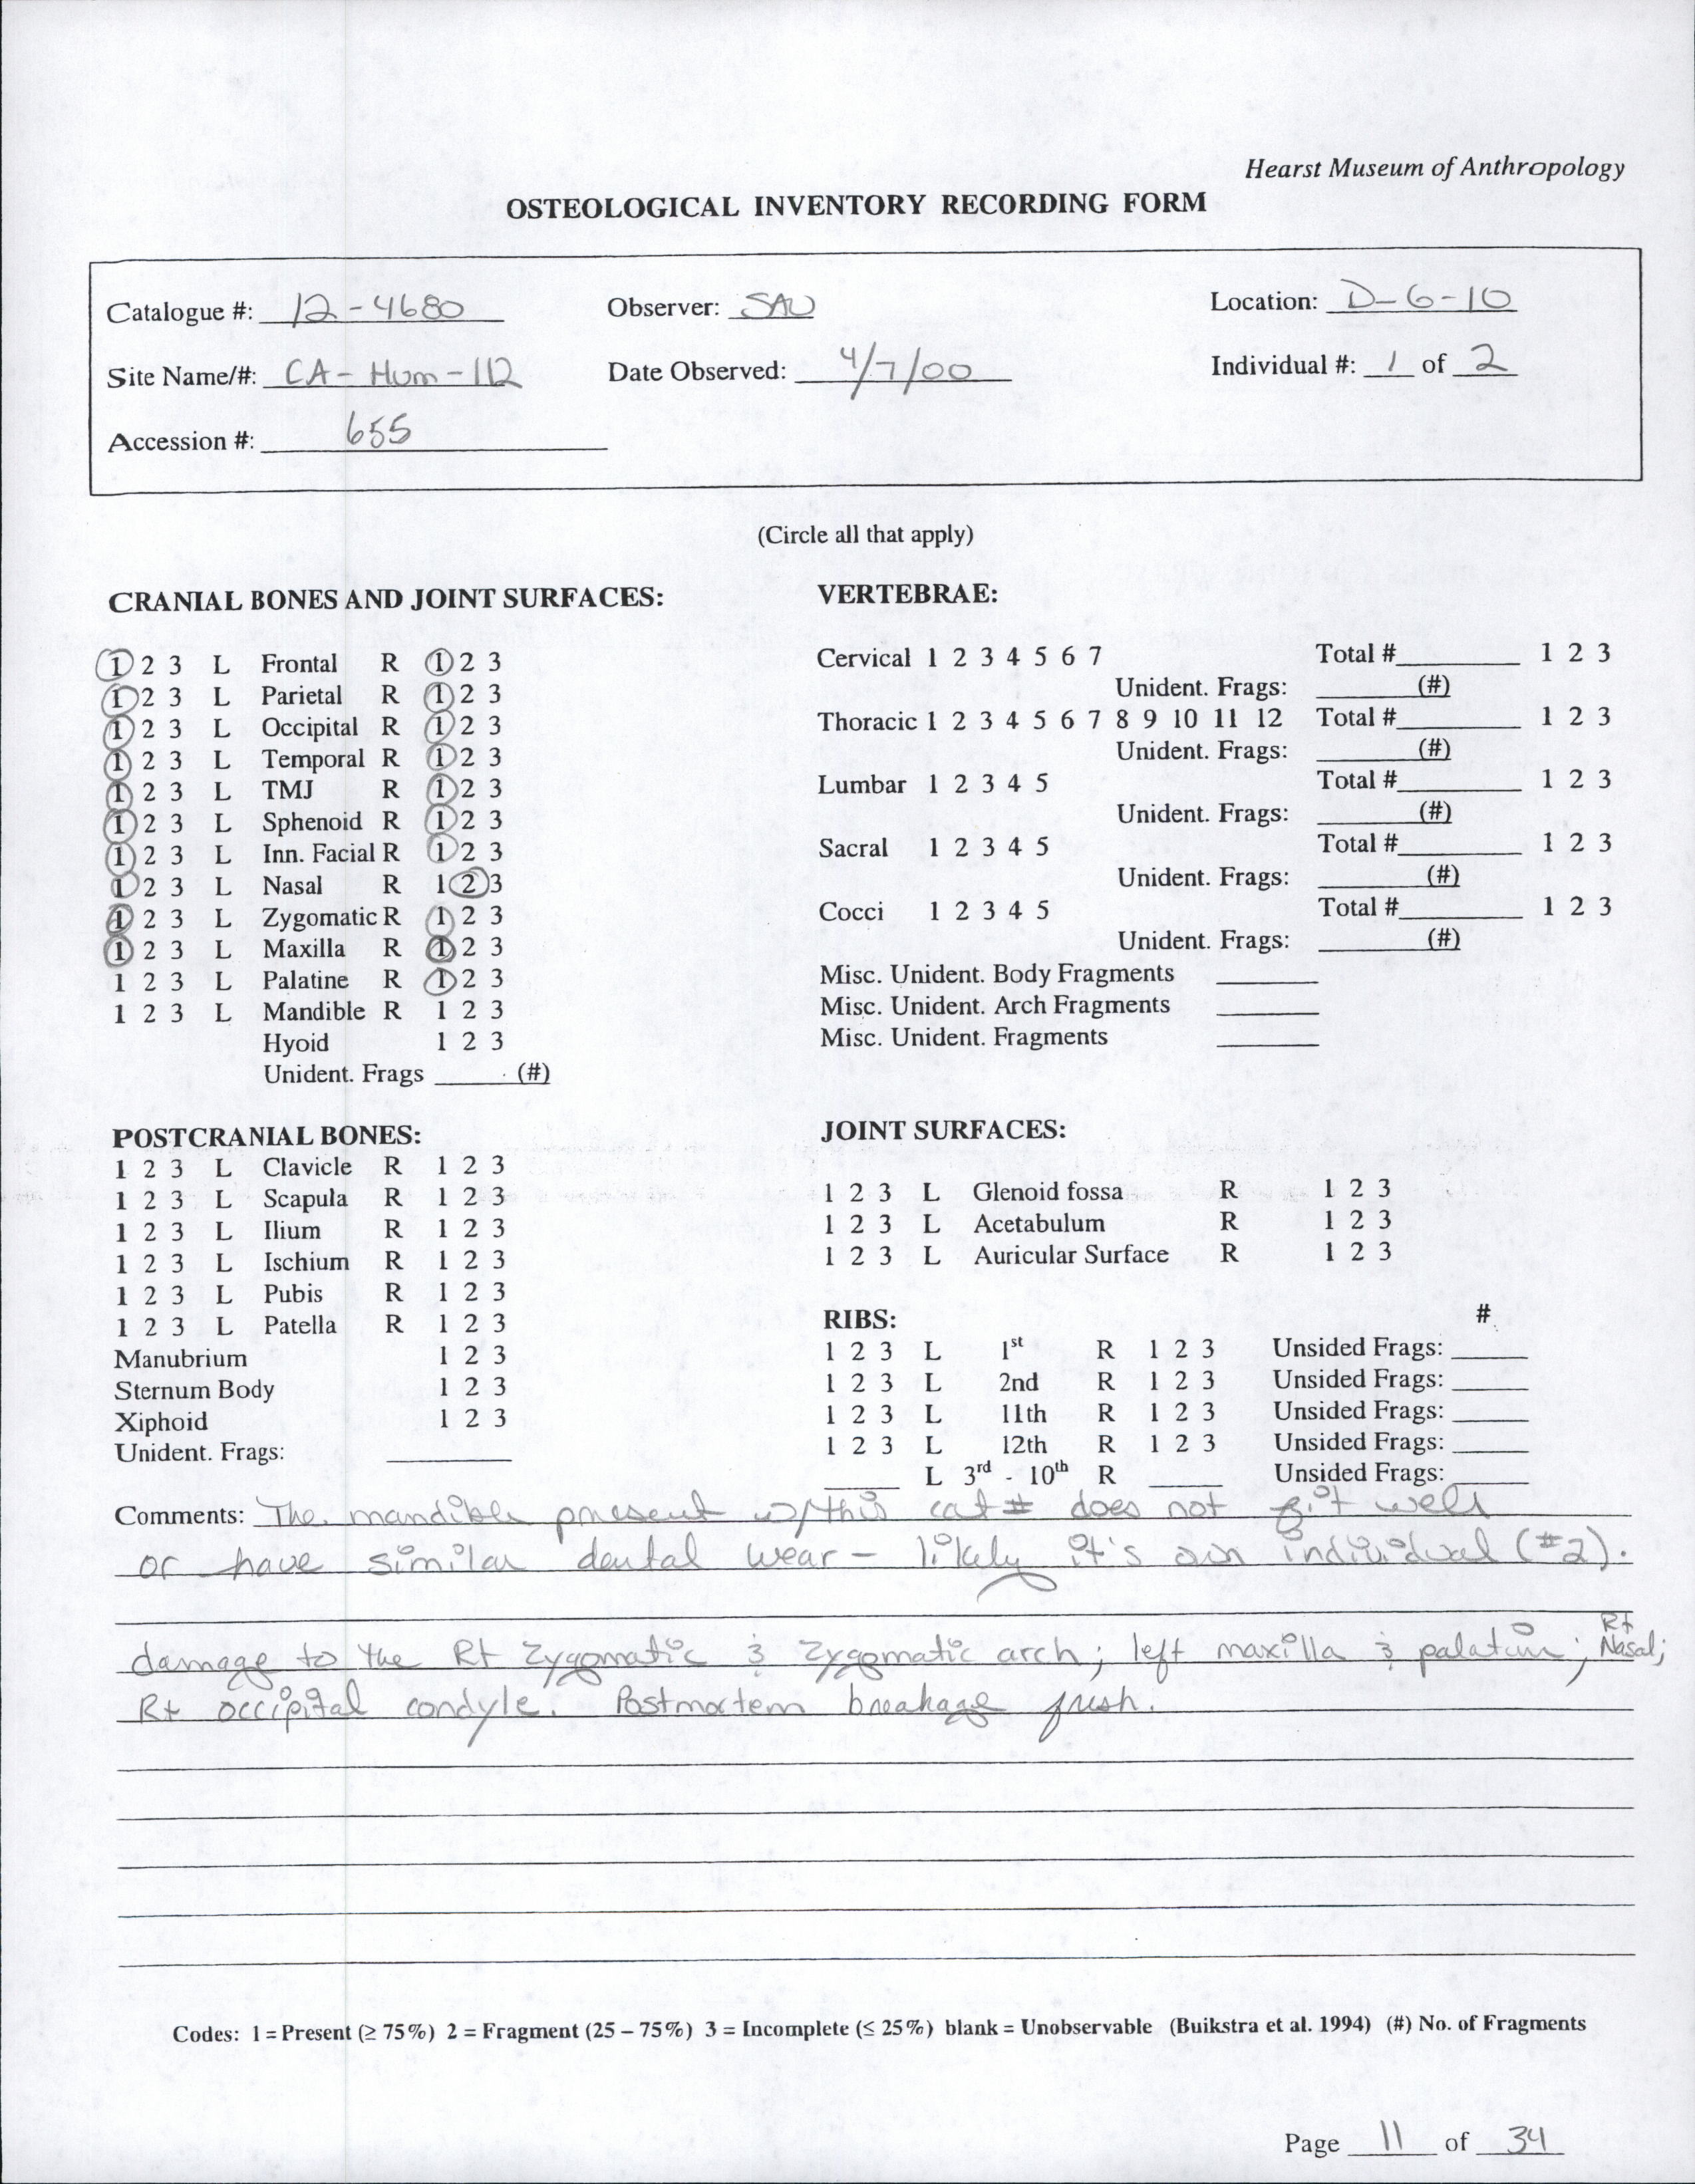 Hearst Museum of Anthropology
OSTEOLOGICAL INVENTORY RECORDING FORM
Catalogue #: 12-4680 Observer: SAU Location: D-6-10
Site Name/#: CA-Hum-112 Date Observed: 4/7/00 Individual #: 1 of 2
Accession #: 655
(Circle all that apply)
CRANIAL BONES AND JOINT SURFACES:
1 2 3 L Frontal R 1 2 3
1 2 3 L Parietal R 1 2 3
1 2 3 L Occipital R 1 2 3
1 2 3 L Temporal R 1 2 3
1 2 3 L TMJ R 1 2 3
1 2 3 L Sphenoid R 1 2 3
1 2 3 L Inn. Facial R 1 2 3
1 2 3 L Nasal R 1 2 3
1 2 3 L Zygomatic R 1 2 3
1 2 3 L Maxilla R 1 2 3
1 2 3 L Palatine R 1 2 3
1 2 3 L Mandible R 1 2 3
Hyoid 1 2 3
Unident. Frags ______ (#)
VERTEBRAE:
Cervical 1 2 3 4 5 6 7 Total #________ 1 2 3
Unident. Frags: ______(#)
Thoracic 1 2 3 4 5 6 7 8 9 10 11 12 Total #________ 1 2 3
Unident. Frags: ______(#)
Lumbar 1 2 3 4 5 Total #________ 1 2 3
Unident. Frags: ______(#)
Sacral 1 2 3 4 5 Total #________ 1 2 3
Unident. Frags: ______(#)
Cocci 1 2 3 4 5 Total #________ 1 2 3
Unident. Frags: ______(#)
Misc. Unident. Body Fragments ______
Misc. Unident. Arch Fragments ______
Misc. Unident. Fragments ______
POSTCRANIAL BONES:
1 2 3 L Clavicle R 1 2 3
1 2 3 L Scapula R 1 2 3
1 2 3 L Ilium R 1 2 3
1 2 3 L Ischium R 1 2 3
1 2 3 L Pubis R 1 2 3
1 2 3 L Patella R 1 2 3
Manubrium 1 2 3
Sternum Body 1 2 3
Xiphoid 1 2 3
Unident. Frags: ________
JOINT SURFACES:
1 2 3 L Glenoid fossa R 1 2 3
1 2 3 L Acetabulum R 1 2 3
1 2 3 L Auricular Surface R 1 2 3
RIBS: #
1 2 3 L 1st R 1 2 3 Unsided Frags: _____
1 2 3 L 2nd R 1 2 3 Unsided Frags: _____
1 2 3 L 11th R 1 2 3 Unsided Frags: _____
1 2 3 L 12th R 1 2 3 Unsided Frags: _____
_____ L 3rd - 10th R _____ Unsided Frags: _____
Comments: The mandible present w/this cat# does not fit well
or have similar dental wear – likely it's own individual (#2).
damage to the Rt zygomatic & zygomatic arch; left maxilla & palatine; Rt Nasal;
Rt occipital condyle. Postmortem breakage fresh.
Codes: 1 = Present (≥ 75%) 2 = Fragment (25 – 75%) 3 = Incomplete (≤ 25%) blank = Unobservable (Buikstra et al. 1994) (#) No. of Fragments
Page 11 of 34